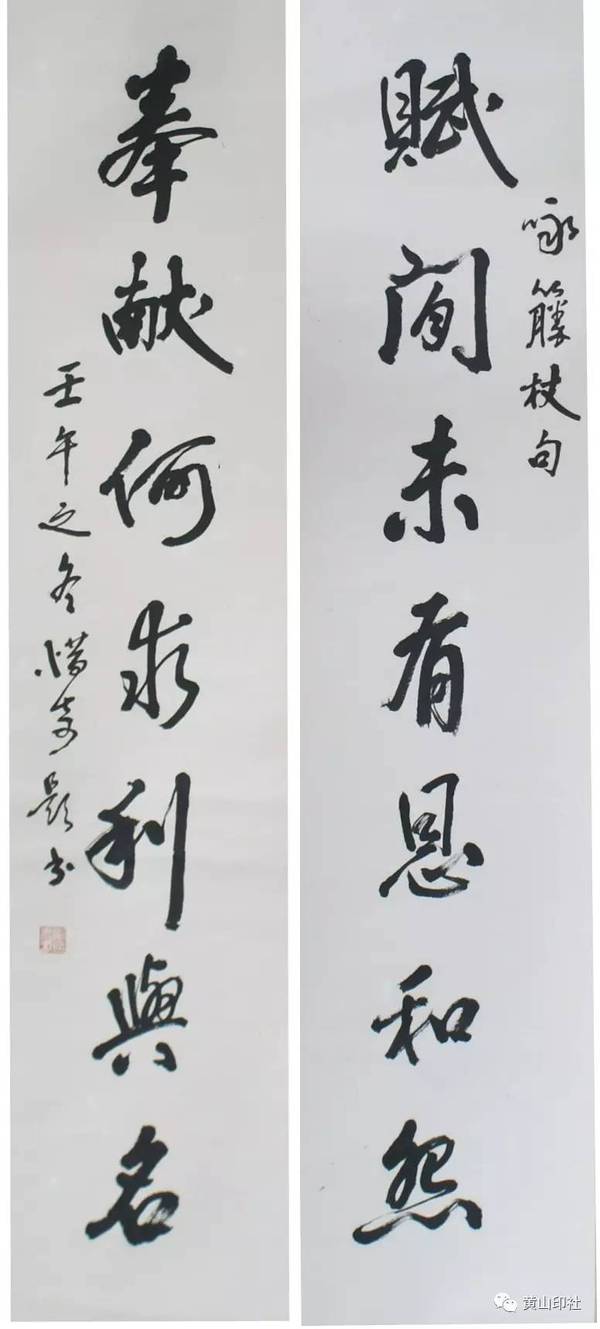 咏籐杖句
賦閒未有恩和怨
奉献何求利與名
壬午之冬惜題书
黄山印社